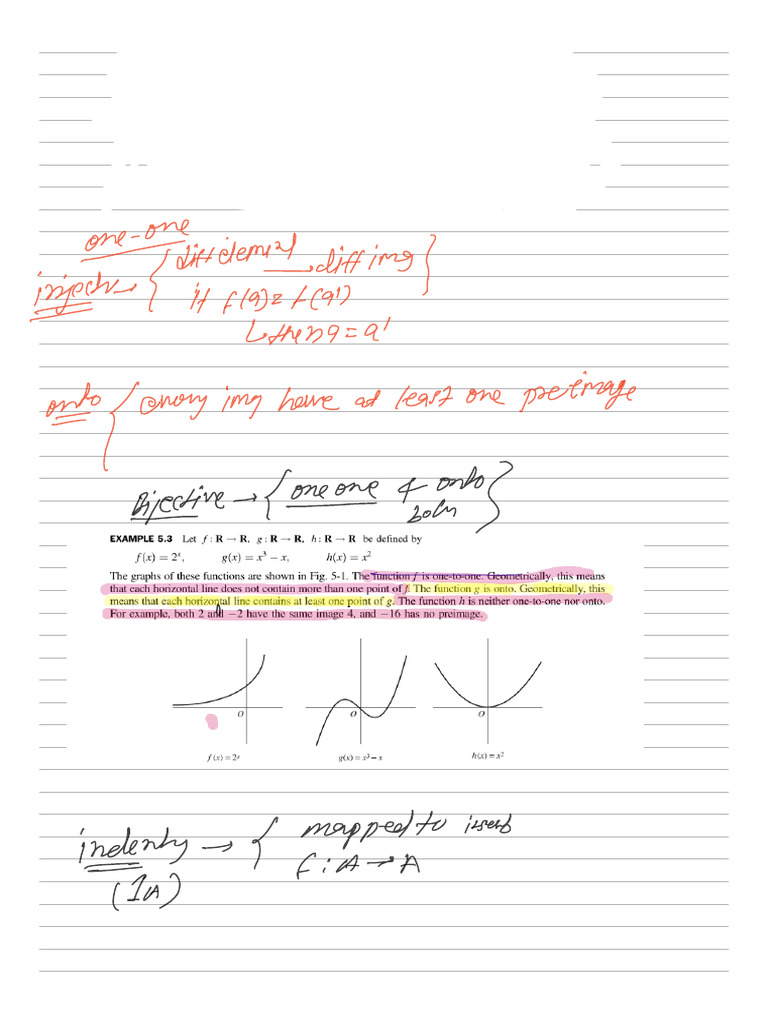 one-one
injectv → { diff element → diff img }
if f(a) = f(a')
↳ then a = a'
onto { every img have at least one preimage
Bijective → { one one & onto }
both
EXAMPLE 5.3 Let f : R → R, g : R → R, h : R → R be defined by
f(x) = 2ˣ, g(x) = x³ − x, h(x) = x²
The graphs of these functions are shown in Fig. 5-1. The function f is one-to-one. Geometrically, this means
that each horizontal line does not contain more than one point of f. The function g is onto. Geometrically, this
means that each horizontal line contains at least one point of g. The function h is neither one-to-one nor onto.
For example, both 2 and −2 have the same image 4, and −16 has no preimage.
O O O
f(x) = 2ˣ g(x) = x³ − x h(x) = x²
indenty → { mapped to itself
(1A) f : A → A